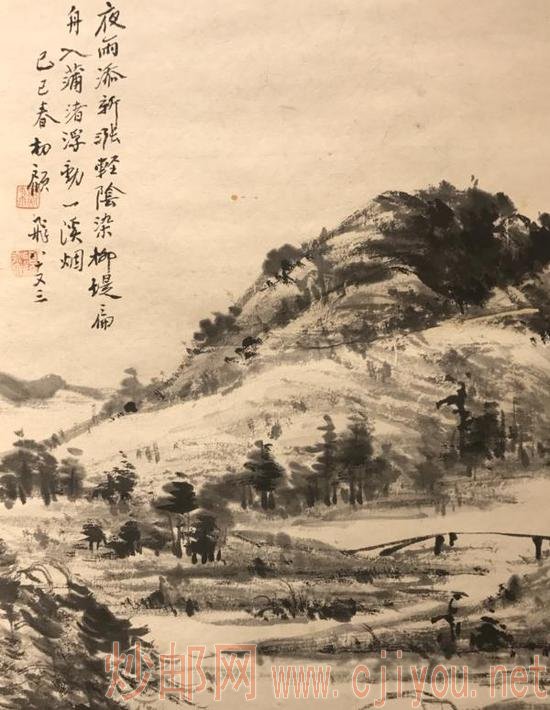 夜雨添新漲輕陰染柳堤扁
舟入蒲渚浮動一溪烟
己巳春初顧飛八十又三
炒邮网 www.cjiyou.net